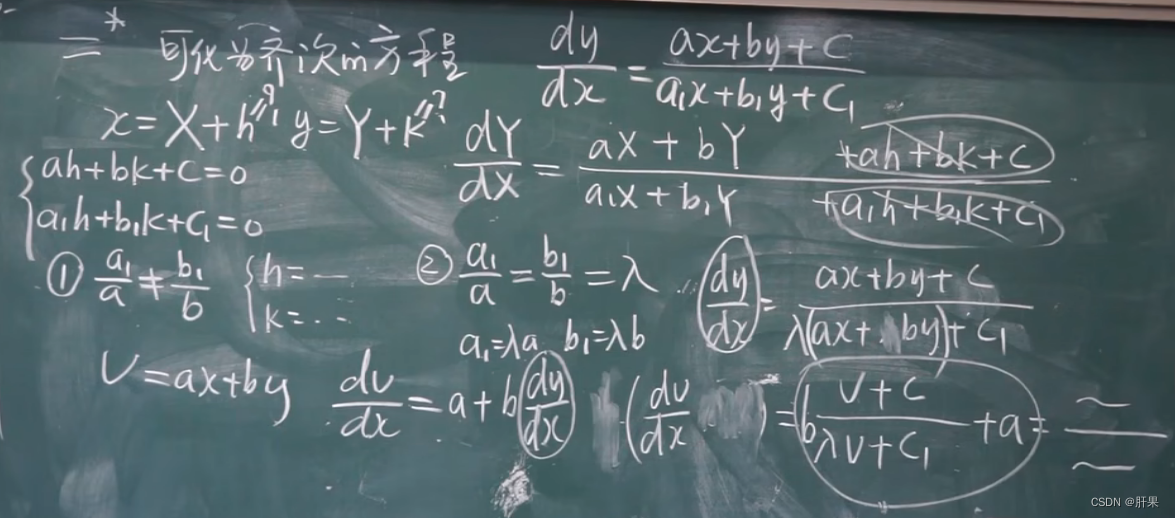 二* 可化为齐次的方程 dy/dx = (ax+by+c)/(a₁x+b₁y+c₁)
x=X+h"? y=Y+k"? dY/dX = (aX+bY +ah+bk+c)/(a₁X+b₁Y +a₁h+b₁k+c₁)
{ah+bk+c=0
a₁h+b₁k+c₁=0
① a₁/a ≠ b₁/b {h=— k=--- ② a₁/a = b₁/b = λ dy/dx = (ax+by+c)/(λ(ax+by)+c₁)
a₁=λa b₁=λb
v=ax+by dv/dx = a+b dy/dx (dv/dx = b (v+c)/(λv+c₁) +a = ~/~
CSDN @肝果